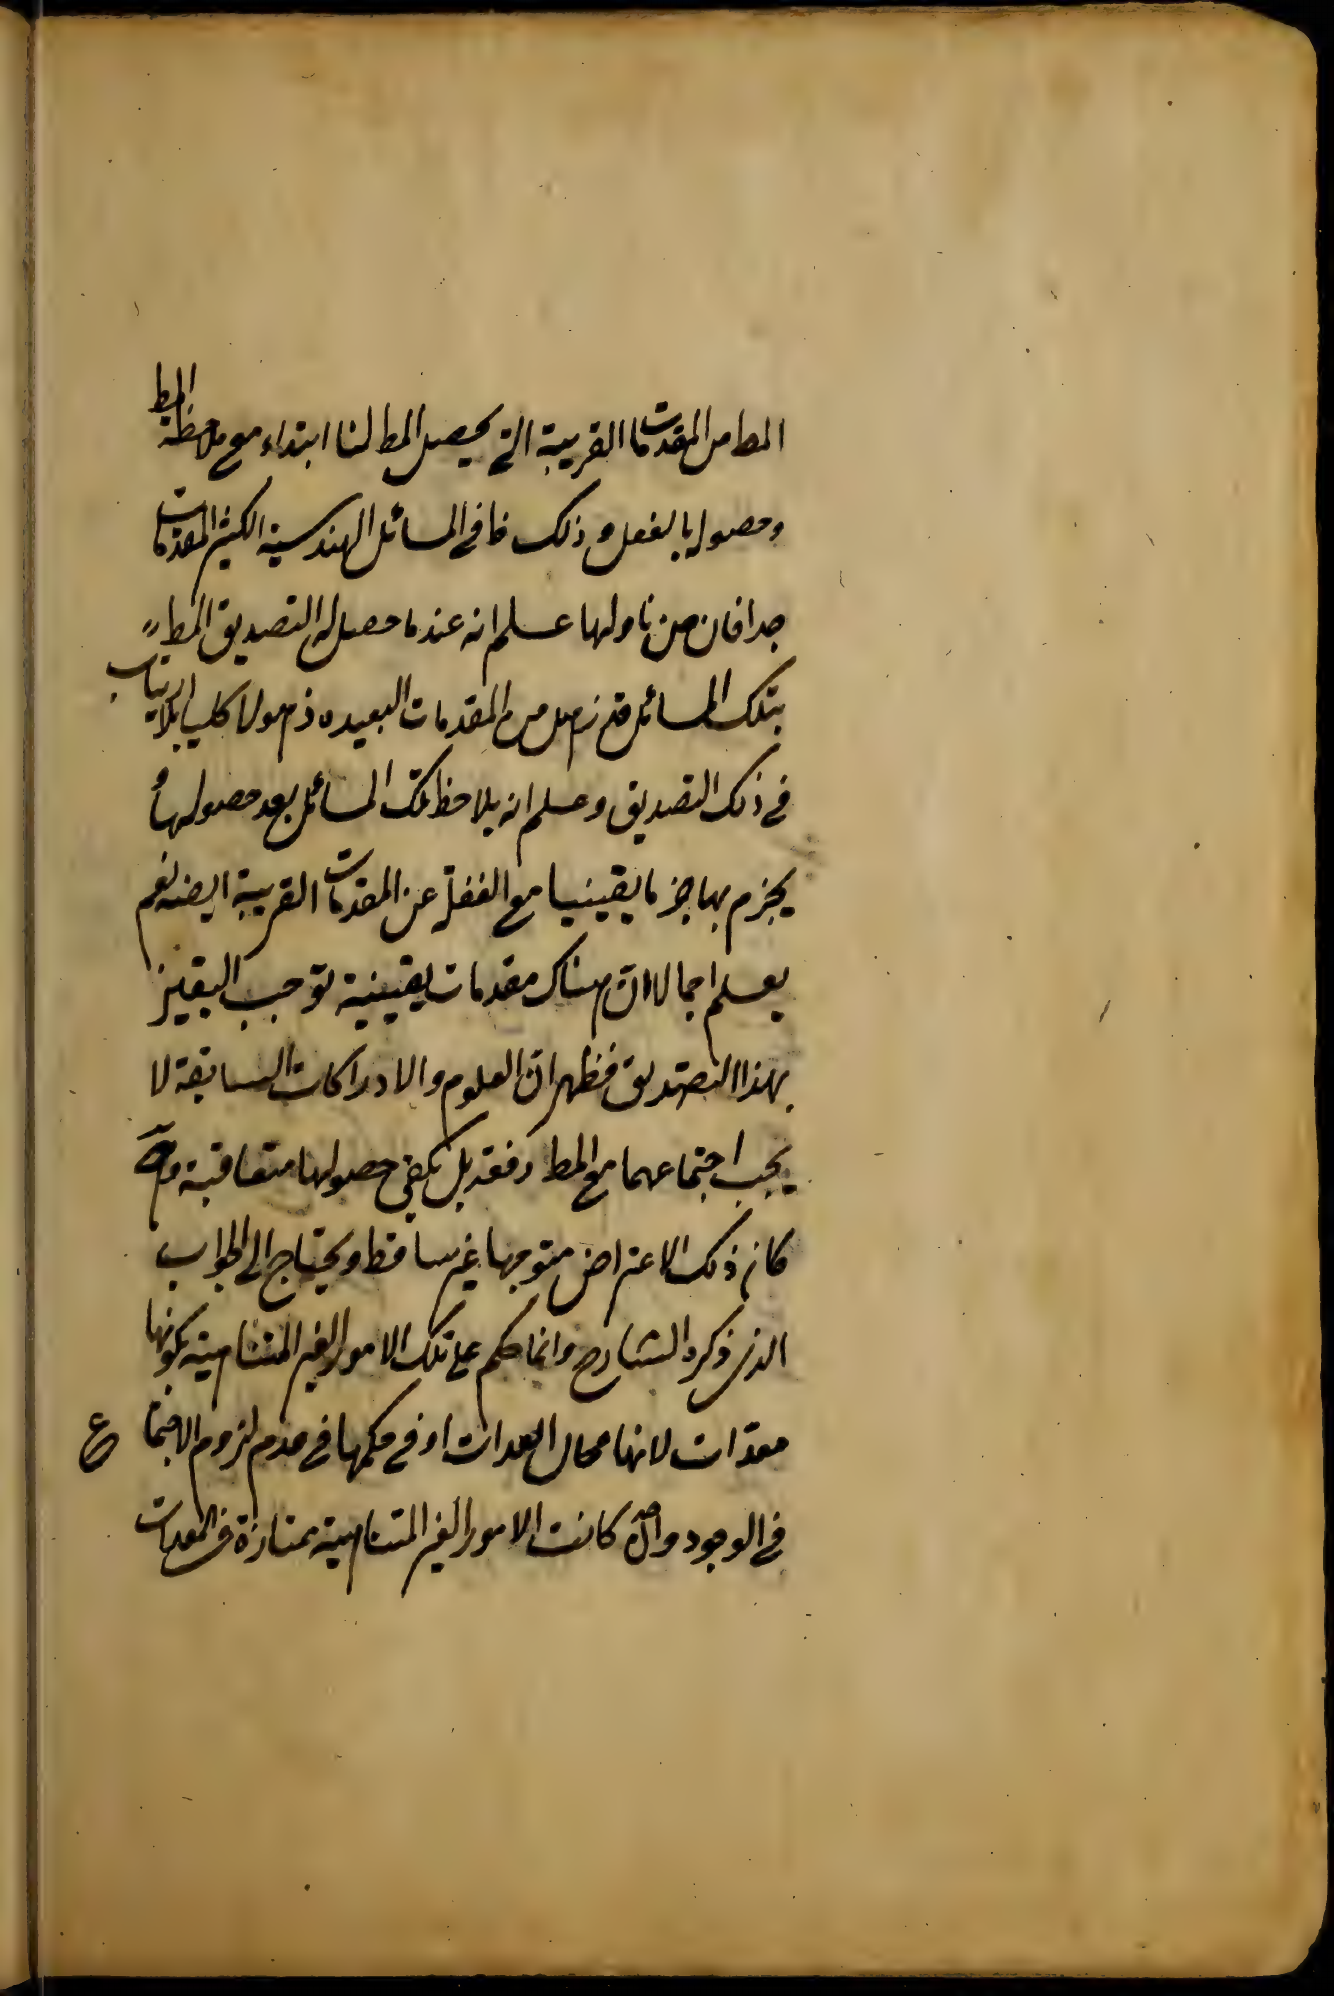 المط من المقدمات القريبة التى يحصل المط لنا ابتداء مع ملاحظة المط
وحصولها بالفعل وذلك ظ فى المسائل الهندسية الكثيرة المقدمات
جدا فان من زاولها علم انه عند ما حصل له التصديق المط
بتلك المسائل قد من المقدمات البعيده ذهولا كليا بلا ارتياب
فى ذلك التصديق وعلم انه يلاحظ تلك المسائل بعد حصولها و
يجزم بها جزما يقينيا مع الغفلة عن المقدمات القريبة ايضا نعم
يعلم اجمالا ان هناك مقدمات يقينية توجب اليقين
بهذا التصديق فظهر ان العلوم والادراكات السابقة لا
يجب اجتماعهما مع المط دفعة بل يكفى حصولها متعاقبة وح
كان ذلك الاعتراض متوجها غير ساقط ويحتاج الى الجواب
الذى ذكره الشارح وانما حكم على تلك الامور الغير المتناهية بكونها
معدّات لانها محال المعدات او فى حكمها فى عدم لزوم الاجتماع
فى الوجود والا كانت الامور الغير المتناهية ممتازة فى المعدات